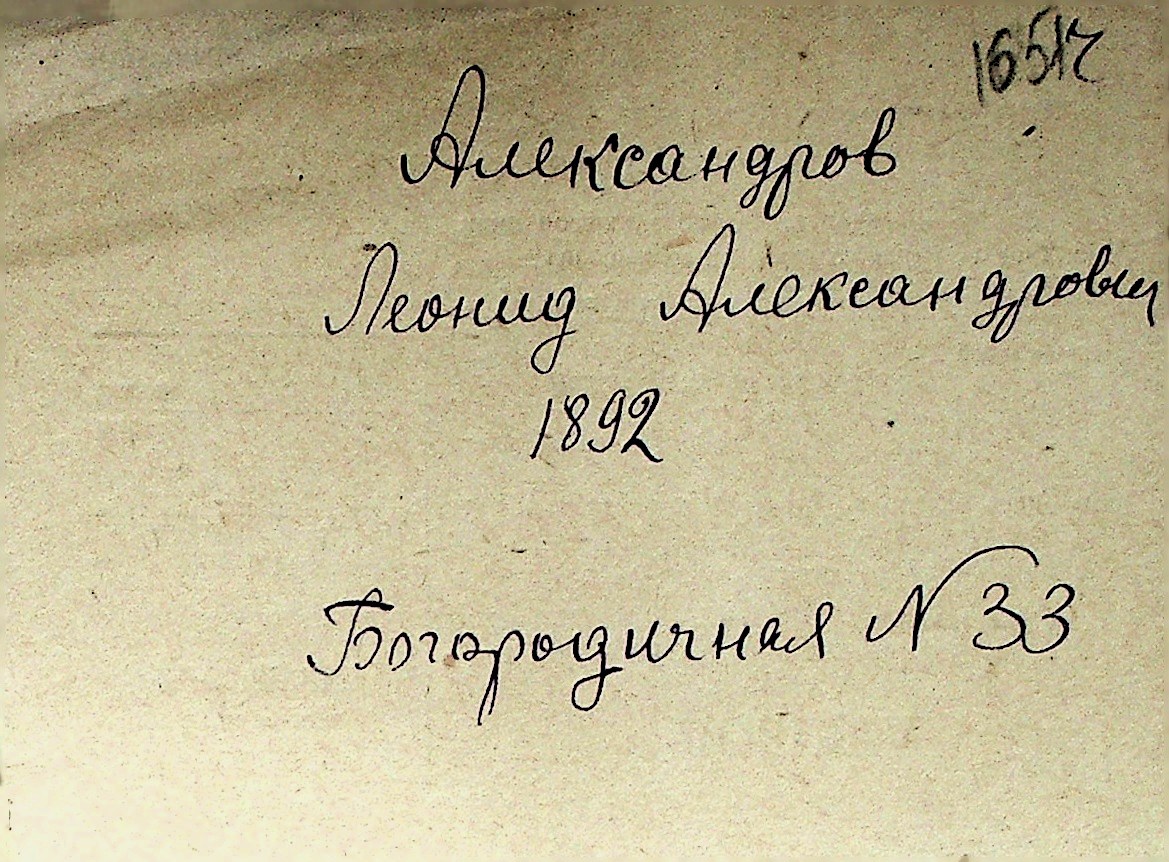 Александров
Леонид Александрович
1892
Богородичная N 33